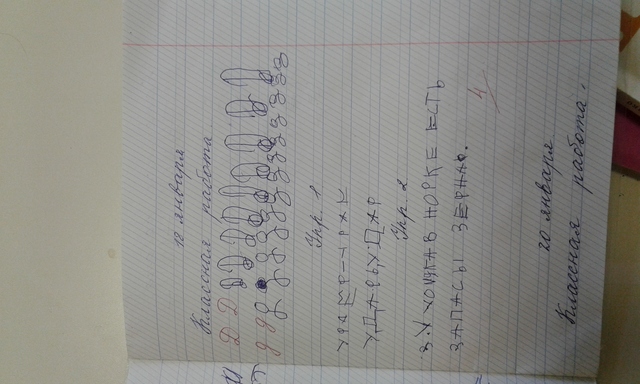 18 января
Классная работа
Д Д Д Д Д Д Д Д Д Д Д
д д д д д д д д д д д д д д д
Упр. 1
УДАРЫ УДАР
Упр. 2
З.У ХОМЯКА В НОРКЕ ЕСТЬ
ЗАПАСЫ ЗЕРНА.
4
20 января
Классная работа.